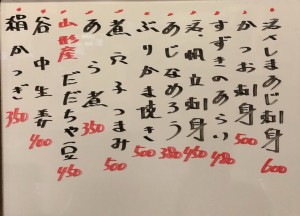 活しまあじ刺身 600
かつお刺身 500
すずきのあらい 480
活帆立刺身 450
あじなめろう 380
ぶりかま焼き 500
煮穴子つまみ 500
あら煮 350
山形産だだちゃ豆 450
谷中生姜 400
絹かつぎ 350